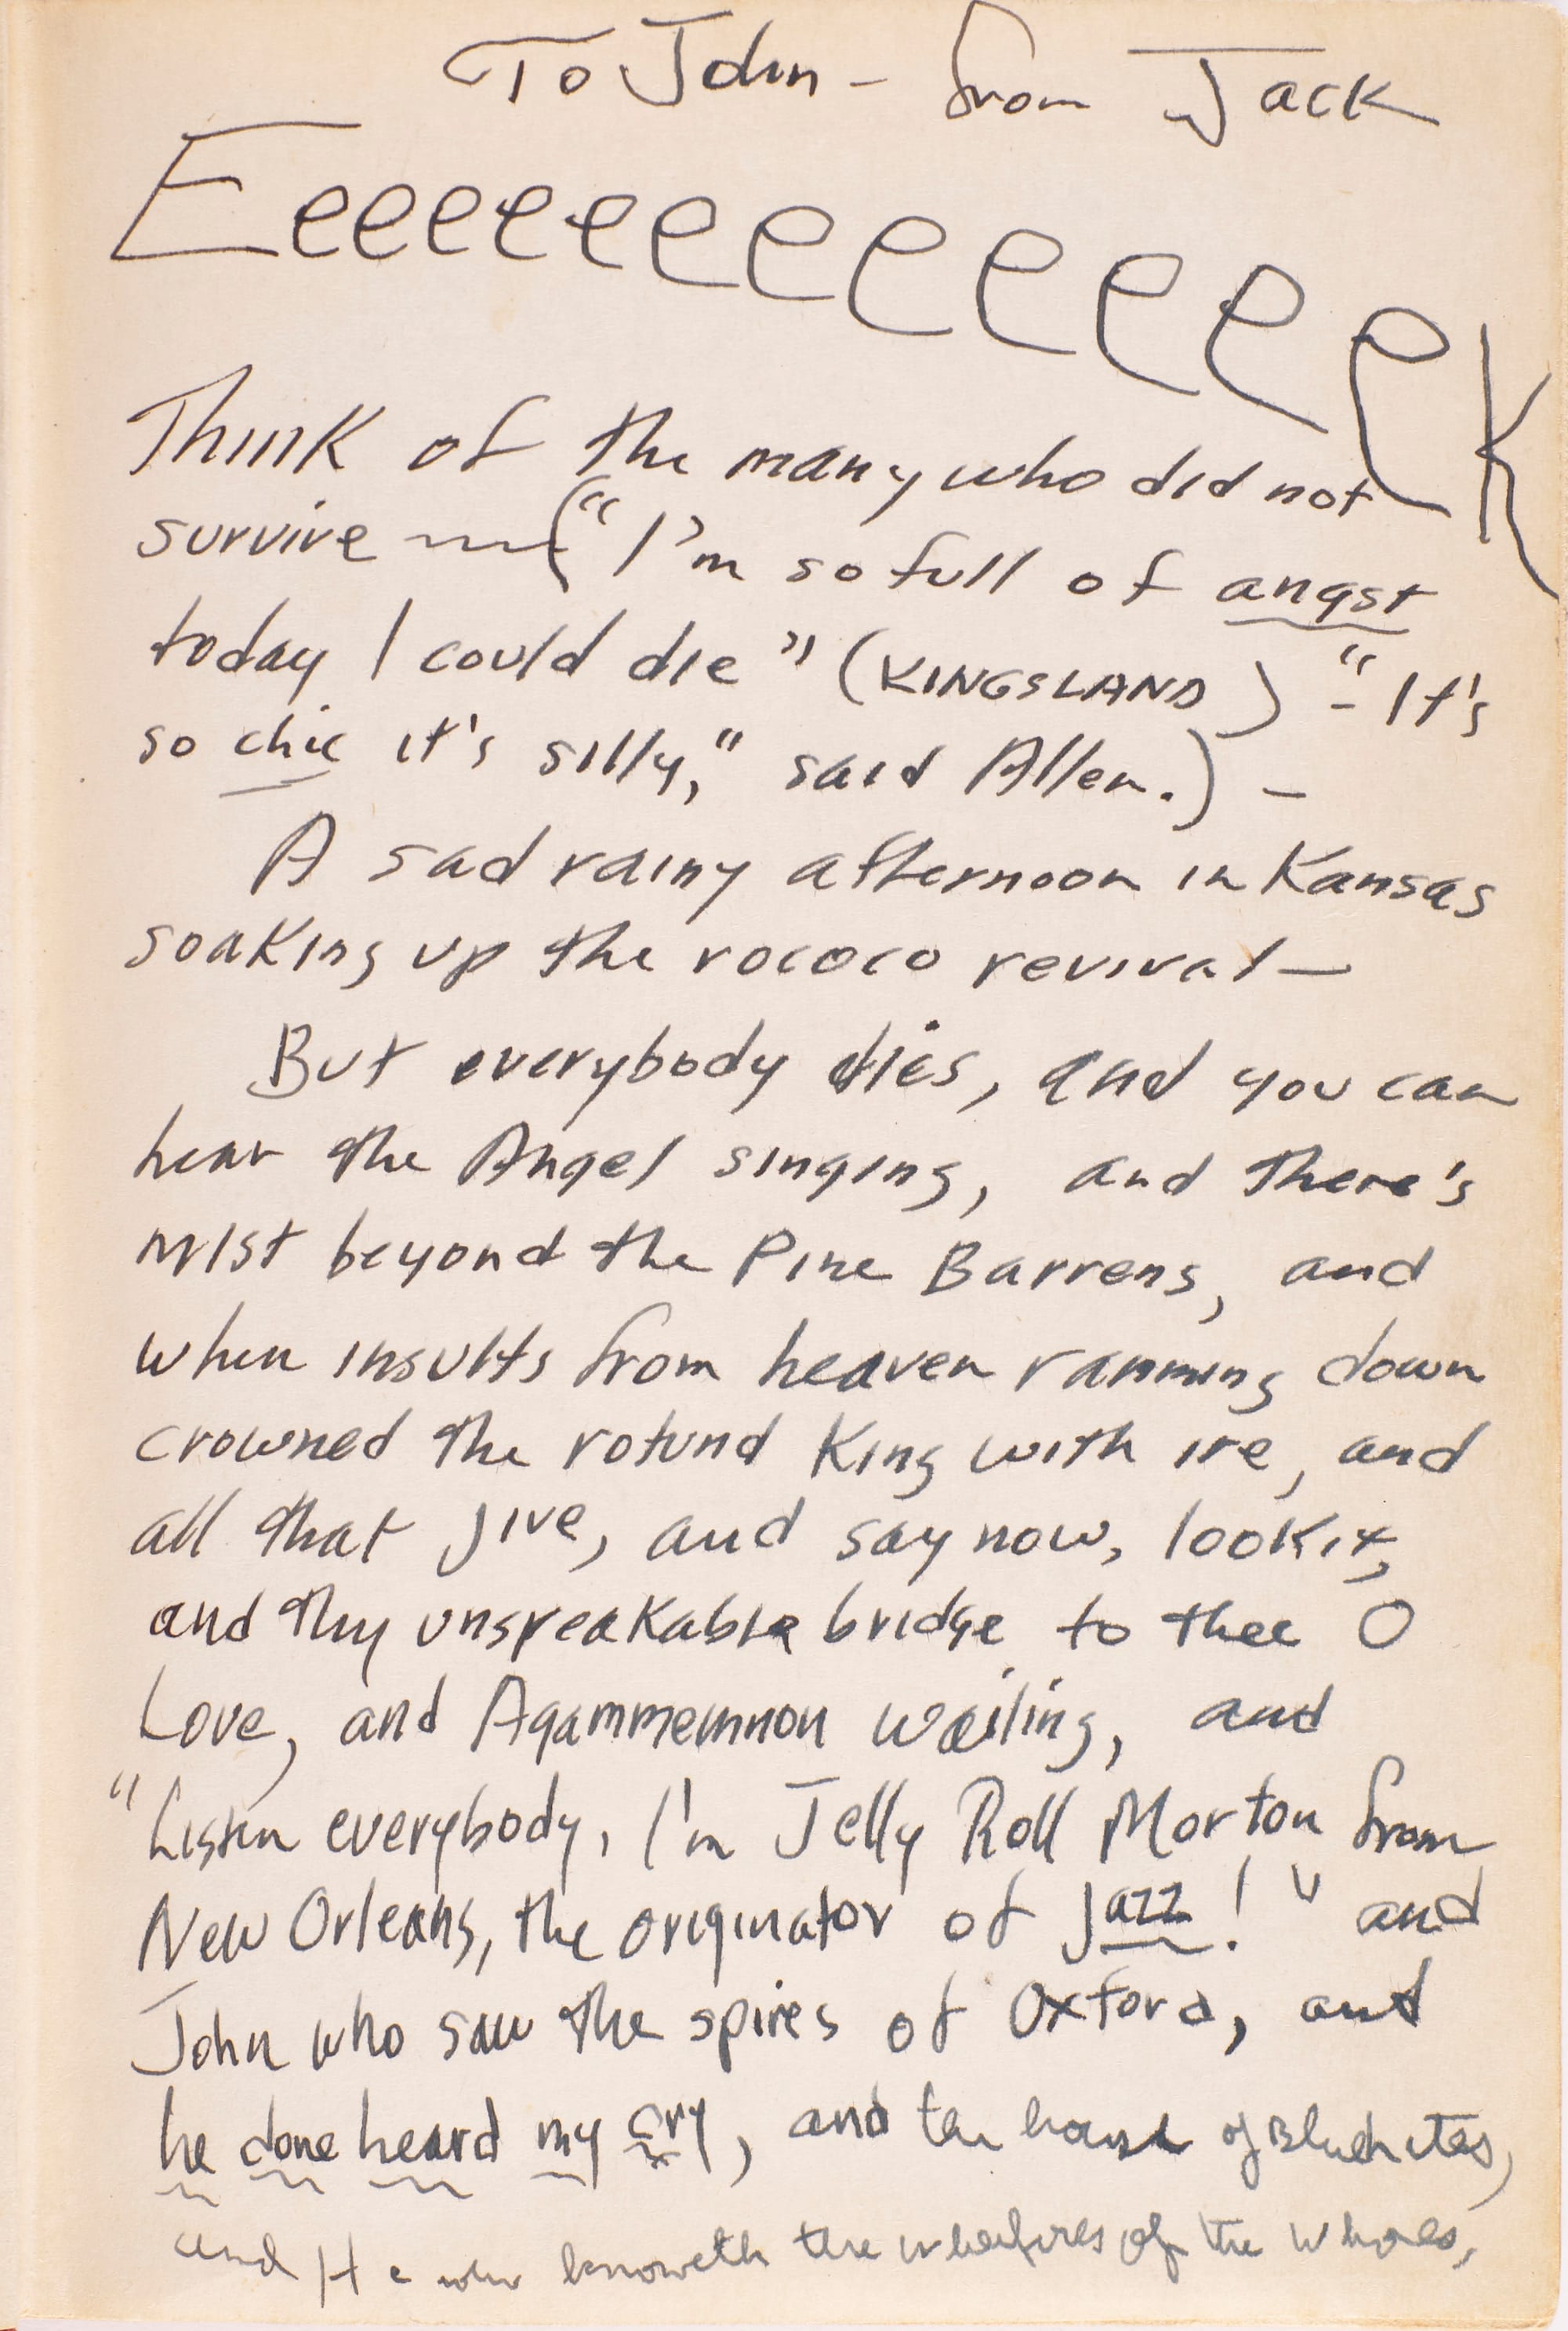 To John – from Jack
EeeeeeeeeeeeK
Think of the many who did not
survive — (“I'm so full of angst
today I could die” (KINGSLAND) – “It's
so chic it's silly,” said Allen.) –
A sad rainy afternoon in Kansas
soaking up the rococo revival —
But everybody dies, and you can
hear the Angel singing, and there's
mist beyond the Pine Barrens, and
when insults from heaven ramming down
crowned the rotund King with ire, and
all that jive, and say now, lookit,
and thy unspeakable bridge to thee O
Love, and Agammemnon wailing, and
“Listen everybody, I'm Jelly Roll Morton from
New Orleans, the originator of jazz!” and
John who saw the spires of Oxford, and
he done heard my cry, and the house of
and He who knoweth the wherefores of the whores,